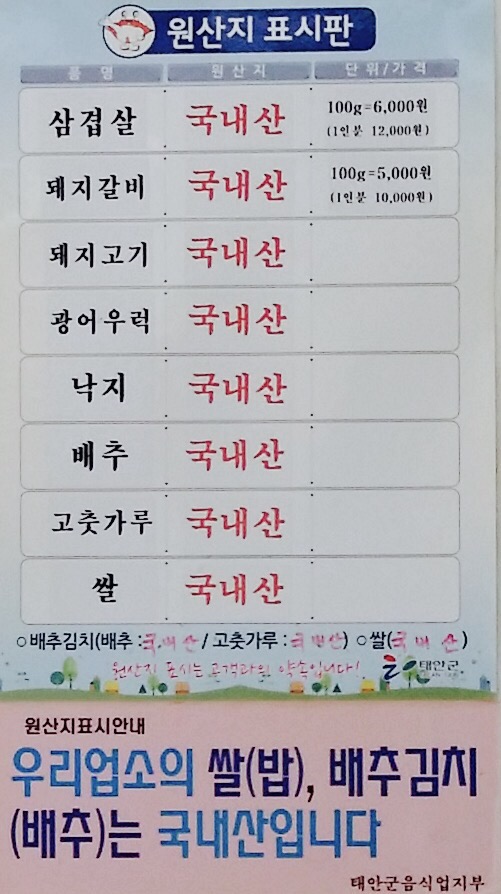 원산지 표시판
품 명 원 산 지 단 위 / 가 격
삼겹살 국내산 100g=6,000원
(1인분 12,000원)
돼지갈비 국내산 100g=5,000원
(1인분 10,000원)
돼지고기 국내산
광어우럭 국내산
낙지 국내산
배추 국내산
고춧가루 국내산
쌀 국내산
○배추김치(배추 :국내산 / 고춧가루 : 국내산) ○쌀(국내 산)
원산지 표시는 고객과의 약속입니다!
태안군
원산지표시안내
우리업소의 쌀(밥), 배추김치
(배추)는 국내산입니다
태안군음식업지부